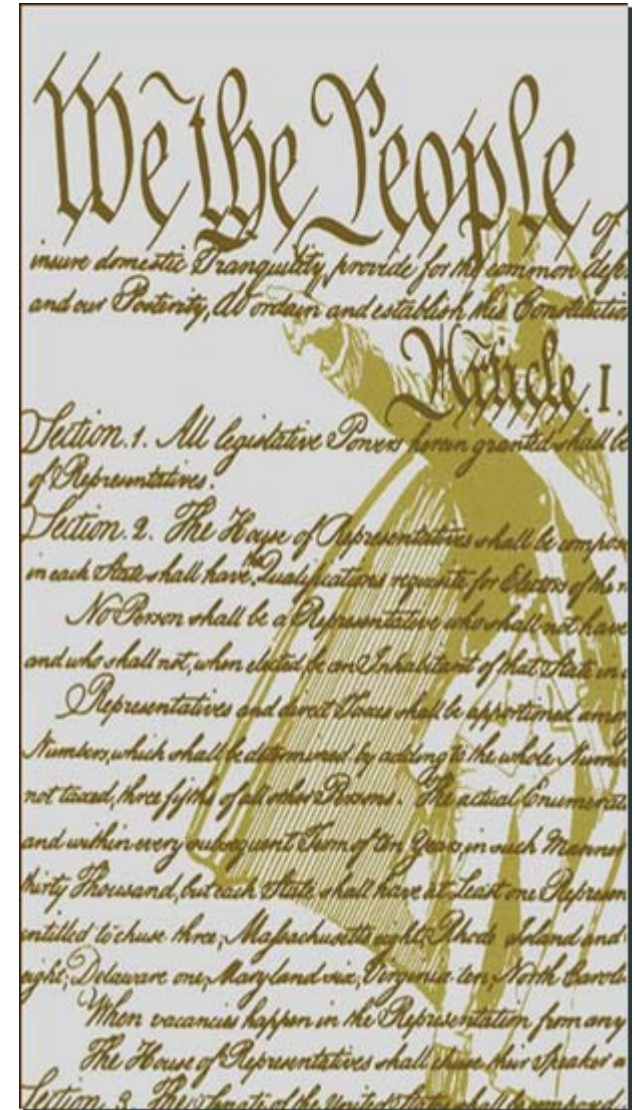 We the People of
insure domestic Tranquility, provide for the common defe
and our Posterity, do ordain and establish this Constitutio
Article. I.
Section. 1. All legislative Powers herein granted shall be
of Representatives.
Section. 2. The House of Representatives shall be compos
in each State shall have the Qualifications requisite for Electors of the n
No Person shall be a Representative who shall not have
and who shall not, when elected, be an Inhabitant of that State in w
Representatives and direct Taxes shall be apportioned amon
Numbers, which shall be determined by adding to the whole Numb
not taxed, three fifths of all other Persons. The actual Enumerat
and within every subsequent Term of ten Years, in such Manner
thirty Thousand, but each State shall have at Least one Represen
entitled to chuse three, Massachusetts eight, Rhode Island and
eight, Delaware one, Maryland six, Virginia ten, North Caroli
When vacancies happen in the Representation from any
The House of Representatives shall chuse their Speaker a
Section. 3. The Senate of the United States shall be composed